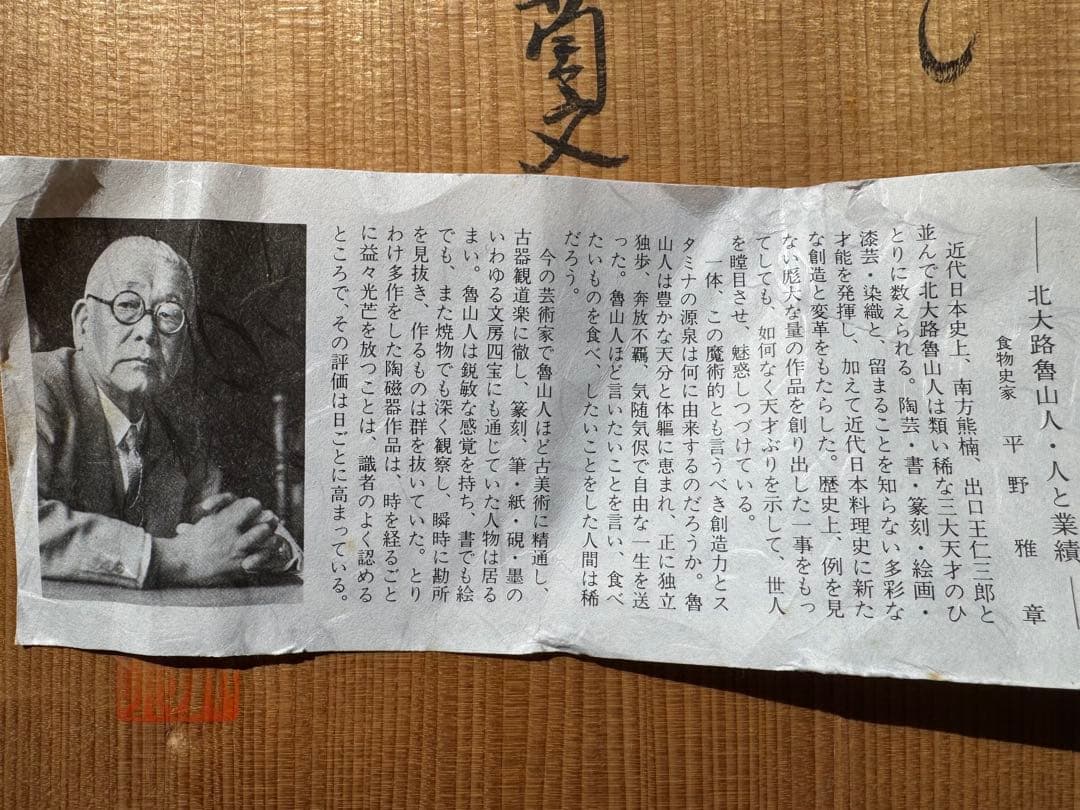 し
蘭文
―北大路魯山人・人と業績―
食物史家　平野雅章
近代日本史上、南方熊楠、出口王仁三郎と
並んで北大路魯山人は類い稀な三大天才のひ
とりに数えられる。陶芸・書・篆刻・絵画・
漆芸・染織と、留まることを知らない多彩な
才能を発揮し、加えて近代日本料理史に新た
な創造と変革をもたらした。歴史上、例を見
ない厖大な量の作品を創り出した一事をもっ
てしても、如何なく天才ぶりを示して、世人
を瞠目させ、魅惑しつづけている。
一体、この魔術的とも言うべき創造力とス
タミナの源泉は何に由来するのだろうか。魯
山人は豊かな天分と体軀に恵まれ、正に独立
独歩、奔放不羈、気随気侭で自由な一生を送
った。魯山人ほど言いたいことを言い、食べ
たいものを食べ、したいことをした人間は稀
だろう。
今の芸術家で魯山人ほど古美術に精通し、
古器観道楽に徹し、篆刻、筆・紙・硯・墨の
いわゆる文房四宝にも通じていた人物は居る
まい。魯山人は鋭敏な感覚を持ち、書でも絵
でも、また焼物でも深く観察し、瞬時に勘所
を見抜き、作るものは群を抜いていた。とり
わけ多作をした陶磁器作品は、時を経るごと
に益々光芒を放つことは、識者のよく認める
ところで、その評価は日ごとに高まっている。